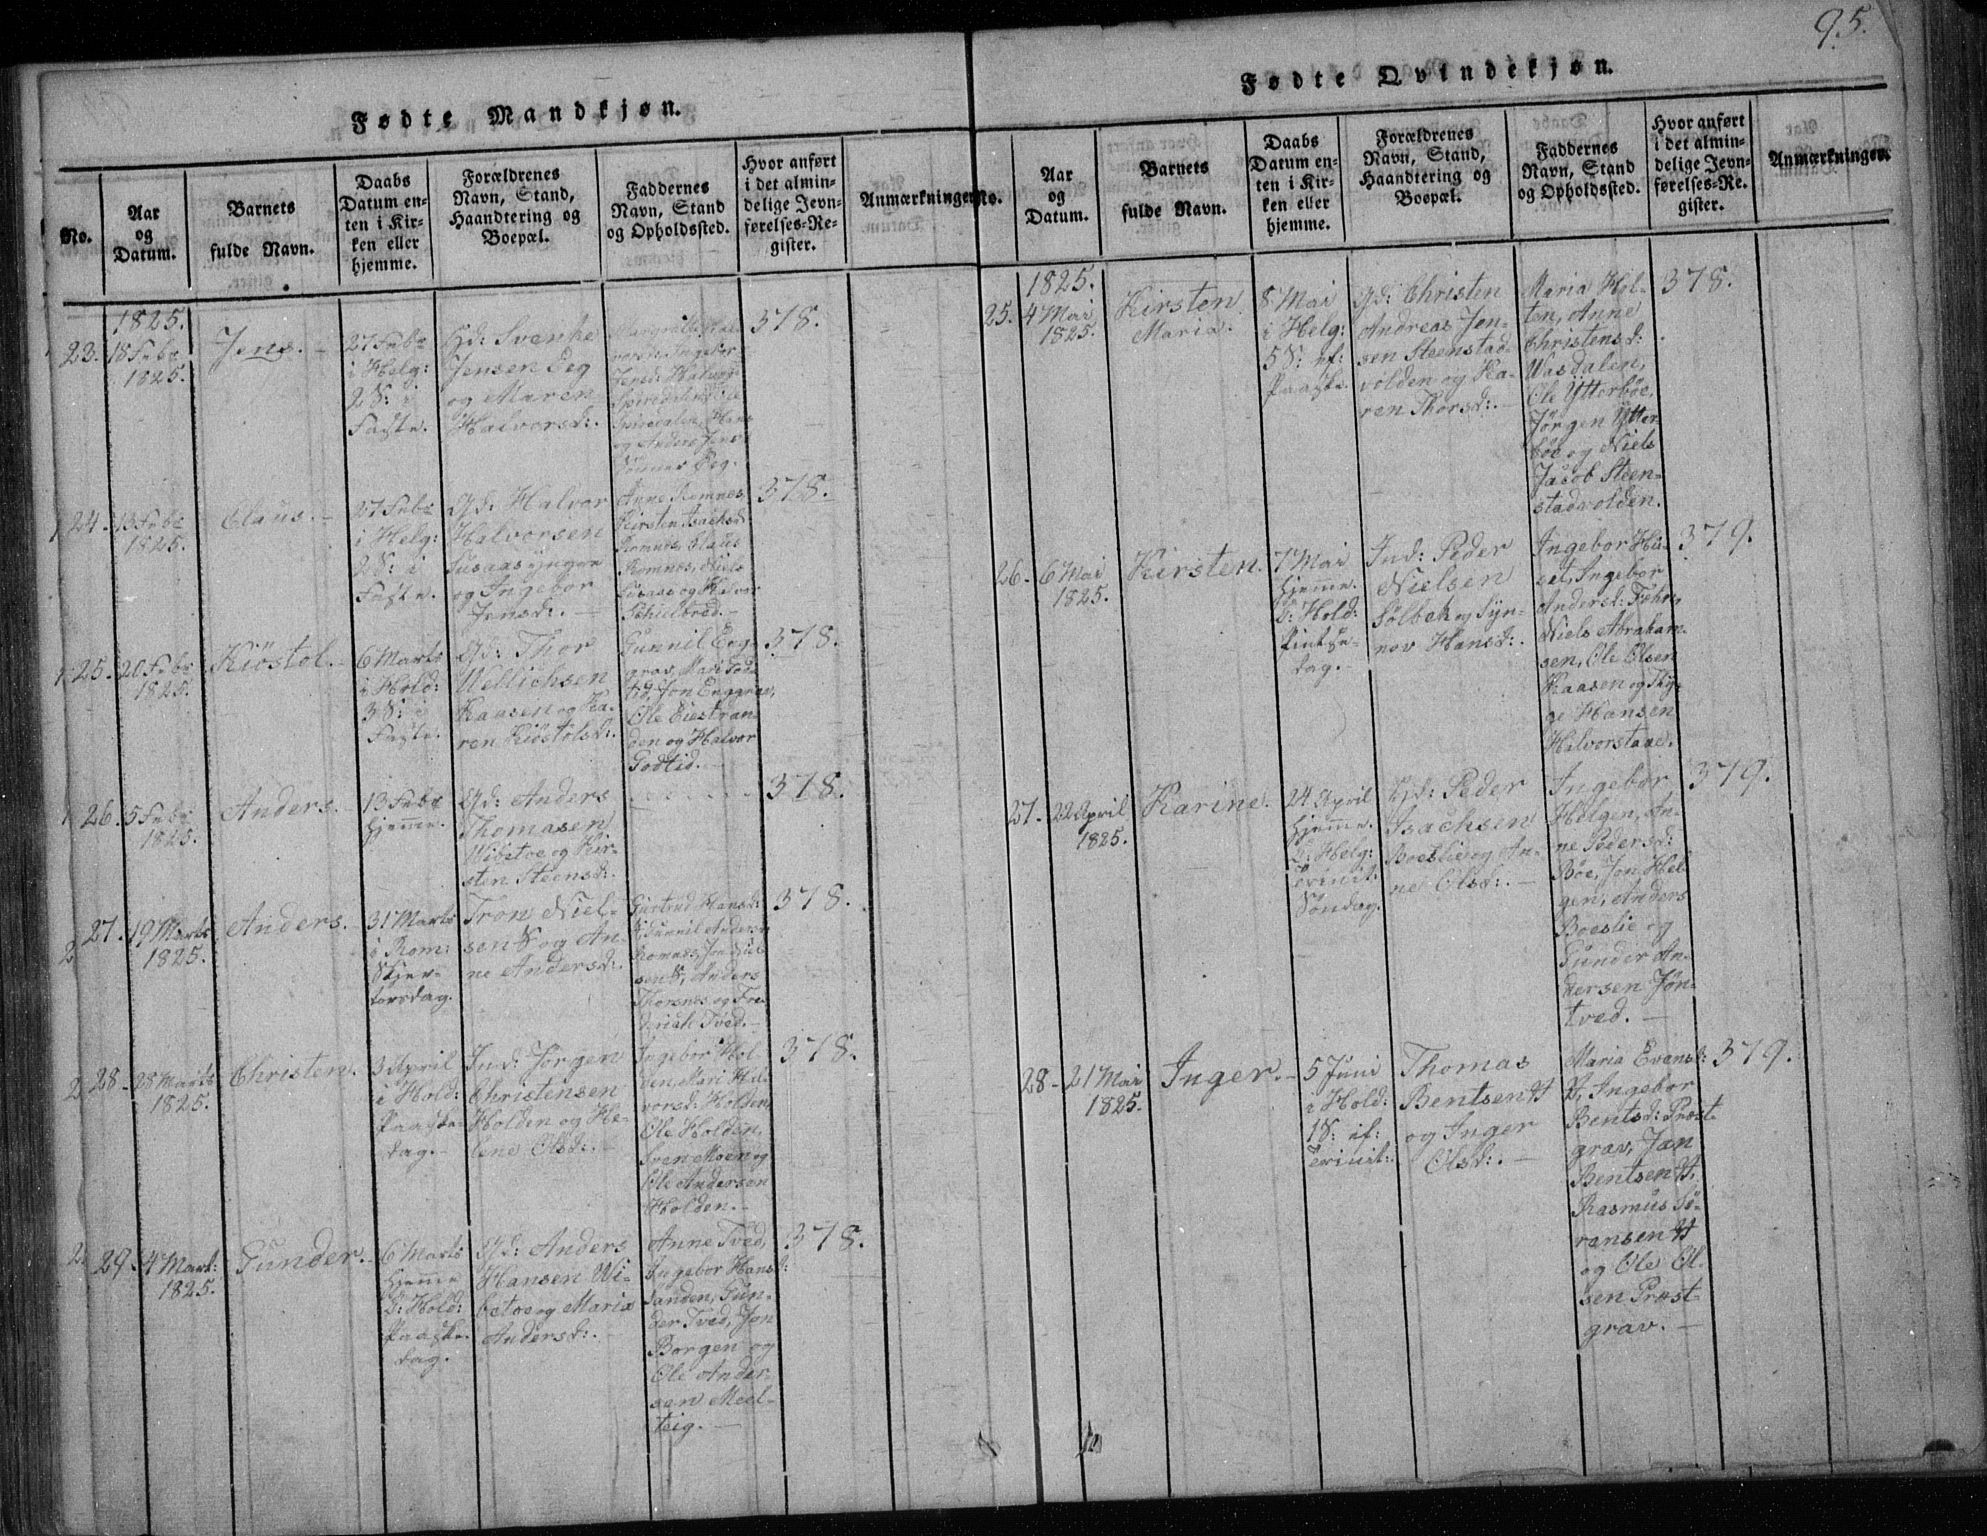 95.
Fødte Mandkjøn.
No.
Aar
og
Datum.
Barnets
fulde Navn.
Daabs
Datum en-
ten i Kir-
ken eller
hjemme.
Forældrenes
Navn, Stand,
Haandtering og
Boepæl.
Faddernes
Navn, Stand
og Opholdssted.
Hvor anført
i det almin-
delige Jevn-
førelses-Re-
gister.
Anmærkninger.
1825.
23. 18 Febr
1825.
Jens. -
27 Febr
i Helg:
2 S: i
Faste.
Gd: Svenke
Jensen Eeg
og Maren
Halvorsd:.
Jensd: Halvor
og Anders Jens
Sönner Eeg.
378.
24. 13 Febr
1825.
Claus. -
27 Febr
i Helg:
2 S: i
Faste.
Gd: Halvor
Halvorsen
yngre
og Ingebor
Jensd:. -
Anne Romnes,
Kirsten Isachsd:
Romnes, Claus
Romnes, Niels
og Halvor
378.
25. 20 Febr
1825.
Kiöstol. -
6 Marts
i Hold:
3 S: i
Faste.
Gd: Thor
Wellichsen
Kaasen og Ka-
ren Kiöstolsd:.
Gunnil Eng-
grav, Mari God-
tid, Jon Enggrav,
Ole Eiestran-
den og Halvor
Godtid. -
378.
26. 5 Febr
1825.
Anders.
13 Febr
hjemme.
Gd: Anders
Thomasen
Wibetoe og Kir-
sten Steensd:.
378.
27. 19 Marts
1825.
Anders. -
31 Marts
i Rom:
Skjer-
torsdag.
Tron Niel-
sen og An-
ne Andersd:.
Giertrud Hansd:
Gunnil Andersd:
Romnes, Jon
Anders
Thorsnes og Fre-
derich Tved. -
378.
28. 28 Marts
1825.
Christen.
3 April
i Hold:
Paaske-
dag. -
Ind: Jörgen
Christensen
Holden og He-
lene Olsd:. -
Ingebor Hol-
den, Mari Hal-
vorsd: Holden,
Ole Holden,
Sven Moen og
Ole Andersen
Holden. -
378.
29. 4 Mart:
1825.
Gunder. -
6 Marts
hjemme
D: Hold:
Paaske-
dag.
Gd: Anders
Hansen Wi-
betoe og Maria
Andersd:. -
Anne Tved,
Ingebor Hansd:
Sanden, Gun-
der Tved, Jon
Borgen og
Ole Ander-
sen Meel-
teig. -
378.
Fødte Qvindekjøn.
No.
Aar
og
Datum.
Barnets
fulde Navn.
Daabs
Datum en-
ten i Kir-
ken eller
hjemme.
Forældrenes
Navn, Stand,
Haandtering og
Boepæl.
Faddernes
Navn, Stand
og Opholdssted.
Hvor anført
i det almin-
delige Jevn-
førelses-Re-
gister.
Anmærkninger.
1825.
25. 4 Mai
1825.
Kirsten
Maria.
8 Mai
i Helg:
5 S: ef:
Paaske.
Gd: Christen
Andreas Jen-
sen Steenstad-
volden og Ka-
ren Thorsd:. -
Maria Hol-
ten, Anne
Christensd:
Wasdalen,
Ole Ytterböe,
Jörgen Ytter-
böe og Niels
Jacob Steen-
stadvolden.
378.
26. 6 Mai
1825.
Kirsten.
7 Mai
hjemme.
D: Hold:
Pintse-
dag. -
Ind: Peder
Nielsen
Sölbek og Syn-
nov Hansd:.
Ingebor Hu-
set, Ingebor
Andersd:
Niels Abraham-
sen, Ole Olsen
Kaasen og Thy-
ge Hansen
Halvorstaae.
379.
27. 22 April
1825.
Karine.
24 April
hjemme.
D: Helg:
Trinit:
Söndag.
Gd: Peder
Isachsen
Boeslie og An-
ne Olsd:. -
Ingebor
Helgen, An-
ne Pedersd:
Böe, Jon Hel-
gen, Anders
Boeslie og
Gunder An-
dersen Jön-
tved. -
379.
28. 21 Mai
1825.
Inger. -
5 Juni
i Hold:
1 S: ef:
Trinit:
Thomas
Bentsen
og Inger
Olsd:. -
Maria Evensd:
Ingebor
Bentsd: Præst-
grav, Jan
Bentsen
Rasmus Sö-
rensen
og Ole Ol-
sen Præst-
grav. -
379.